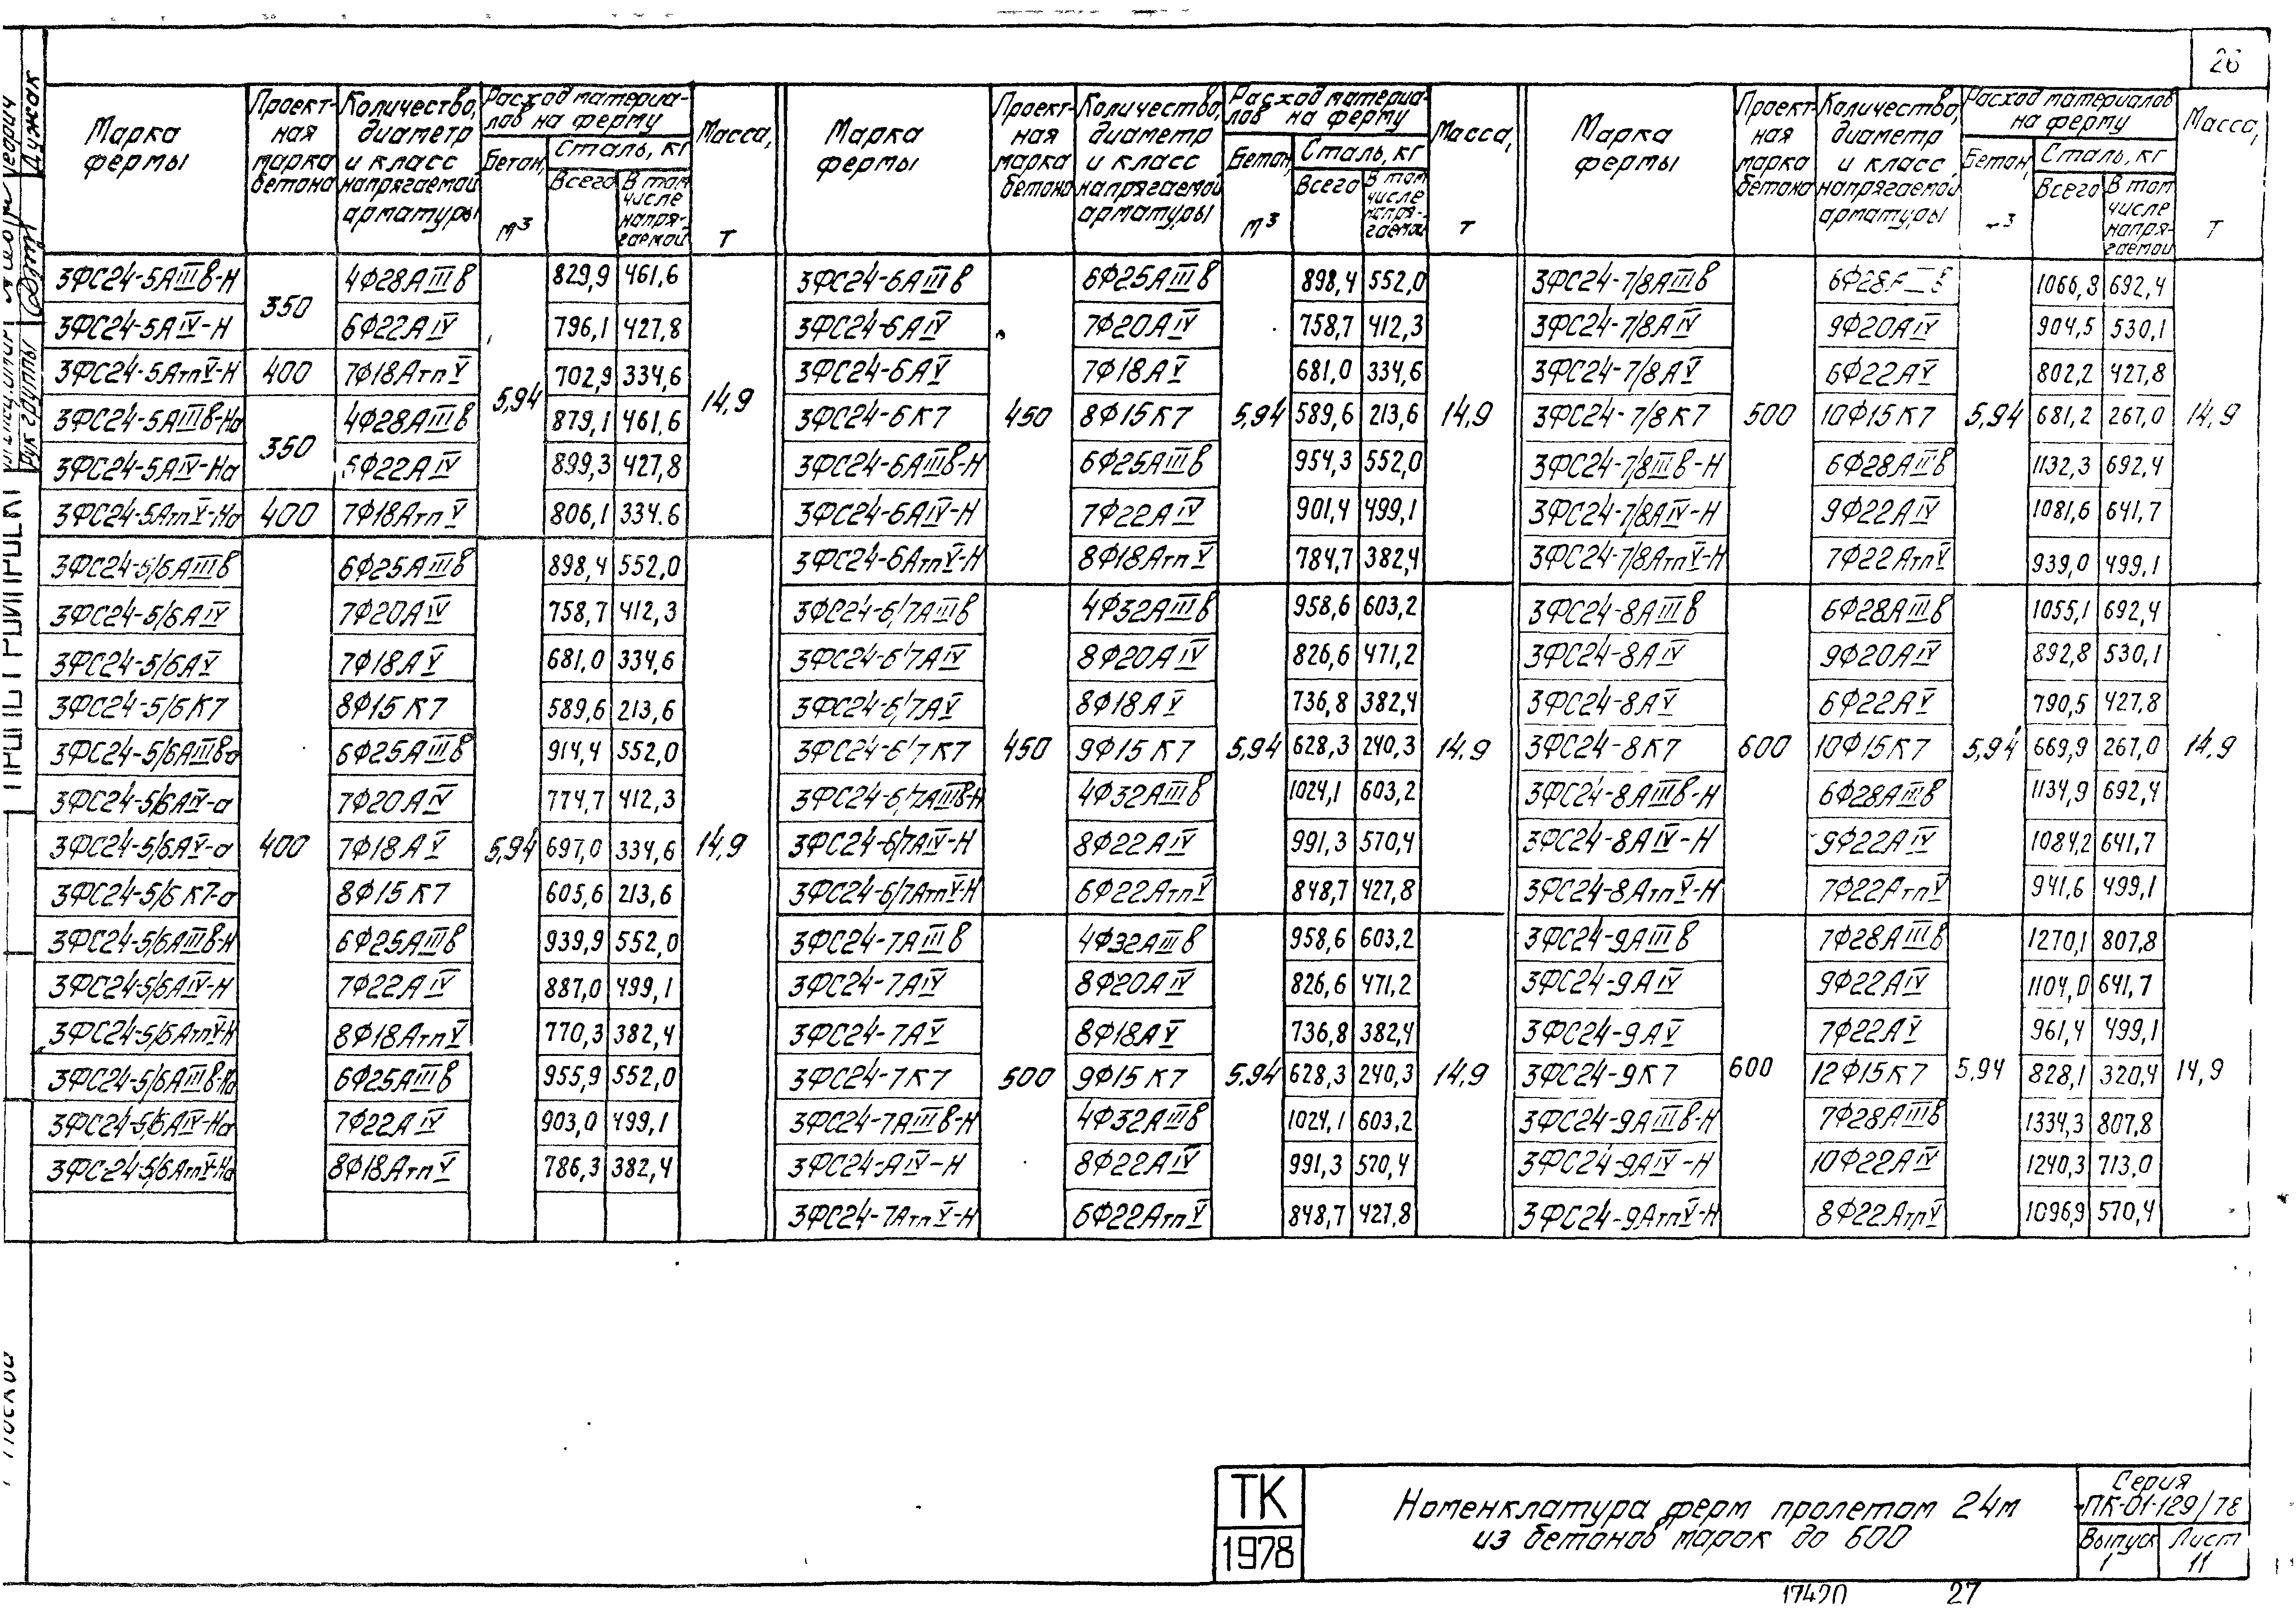 26
Марка фермы | Проектная марка бетона | Количество, диаметр и класс напрягаемой арматуры | Расход материалов на ферму | Бетон, м³ | Сталь, кг | Всего | В том числе напрягаемой | Масса, т
3ФС24-5АIIIв-Н | 350 | 4Ф28АIIIв | 5,94 | 829,9 | 461,6 | 14,9
3ФС24-5АIV-Н | 6Ф22АIV | 796,1 | 427,8
3ФС24-5АтпV-Н | 400 | 7Ф18АтпV | 702,9 | 334,6
3ФС24-5АIIIв-На | 350 | 4Ф28АIIIв | 879,1 | 461,6
3ФС24-5АIV-На | 6Ф22АIV | 899,3 | 427,8
3ФС24-5АтпV-На | 400 | 7Ф18АтпV | 806,1 | 334.6
3ФС24-5/6АIIIв | 400 | 6Ф25АIIIв | 5,94 | 898,4 | 552,0 | 14,9
3ФС24-5/6АIV | 7Ф20АIV | 758,7 | 412,3
3ФС24-5/6АV | 7Ф18АV | 681,0 | 334,6
3ФС24-5/6К7 | 8Ф15К7 | 589,6 | 213,6
3ФС24-5/6АIIIва | 6Ф25АIIIв | 914,4 | 552,0
3ФС24-5/6АIV-а | 7Ф20АIV | 774,7 | 412,3
3ФС24-5/6АV-а | 7Ф18АV | 697,0 | 334,6
3ФС24-5/6К7-а | 8Ф15К7 | 605,6 | 213,6
3ФС24-5/6АIIIв-Н | 6Ф25АIIIв | 939,9 | 552,0
3ФС24-5/6АIV-Н | 7Ф22АIV | 887,0 | 499,1
3ФС24-5/6АтпV-Н | 8Ф18АтпV | 770,3 | 382,4
3ФС24-5/6АIIIв-На | 6Ф25АIIIв | 955,9 | 552,0
3ФС24-5/6АIV-На | 7Ф22АIV | 903,0 | 499,1
3ФС24-5/6АтпV-На | 8Ф18АтпV | 786,3 | 382,4
Марка фермы | Проектная марка бетона | Количество, диаметр и класс напрягаемой арматуры | Расход материалов на ферму | Бетон, м³ | Сталь, кг | Всего | В том числе напрягаемой | Масса, т
3ФС24-6АIIIв | 450 | 6Ф25АIIIв | 5,94 | 898,4 | 552,0 | 14,9
3ФС24-6АIV | 7Ф20АIV | 758,7 | 412,3
3ФС24-6АV | 7Ф18АV | 681,0 | 334,6
3ФС24-6К7 | 8Ф15К7 | 589,6 | 213,6
3ФС24-6АIIIв-Н | 6Ф25АIIIв | 954,3 | 552,0
3ФС24-6АIV-Н | 7Ф22АIV | 901,4 | 499,1
3ФС24-6АтпV-Н | 8Ф18АтпV | 784,7 | 382,4
3ФС24-6/7АIIIв | 450 | 4Ф32АIIIв | 5,94 | 958,6 | 603,2 | 14,9
3ФС24-6/7АIV | 8Ф20АIV | 826,6 | 471,2
3ФС24-6/7АV | 8Ф18АV | 736,8 | 382,4
3ФС24-6/7К7 | 9Ф15К7 | 628,3 | 240,3
3ФС24-6/7АIIIв-Н | 4Ф32АIIIв | 1024,1 | 603,2
3ФС24-6/7АIV-Н | 8Ф22АIV | 991,3 | 570,4
3ФС24-6/7АтпV-Н | 6Ф22АтпV | 848,7 | 427,8
3ФС24-7АIIIв | 500 | 4Ф32АIIIв | 5,94 | 958,6 | 603,2 | 14,9
3ФС24-7АIV | 8Ф20АIV | 826,6 | 471,2
3ФС24-7АV | 8Ф18АV | 736,8 | 382,4
3ФС24-7К7 | 9Ф15К7 | 628,3 | 240,3
3ФС24-7АIIIв-Н | 4Ф32АIIIв | 1024,1 | 603,2
3ФС24-АIV-Н | 8Ф22АIV | 991,3 | 570,4
3ФС24-7АтпV-Н | 6Ф22АтпV | 848,7 | 427,8
Марка фермы | Проектная марка бетона | Количество, диаметр и класс напрягаемой арматуры | Расход материалов на ферму | Бетон, м³ | Сталь, кг | Всего | В том числе напрягаемой | Масса, т
3ФС24-7/8АIIIв | 500 | 5,94 | 1066,8 | 692,4 | 14,9
3ФС24-7/8АIV | 9Ф20АIV | 904,5 | 530,1
3ФС24-7/8АV | 6Ф22АV | 802,2 | 427,8
3ФС24-7/8К7 | 10Ф15К7 | 681,2 | 267,0
3ФС24-7/8IIIв-Н | 6Ф28АIIIв | 1132,3 | 692,4
3ФС24-7/8АIV-Н | 9Ф22АIV | 1081,6 | 641,7
3ФС24-7/8АтпV-Н | 7Ф22АтпV | 939,0 | 499,1
3ФС24-8АIIIв | 600 | 6Ф28АIIIв | 5,94 | 1055,1 | 692,4 | 14,9
3ФС24-8АIV | 9Ф20АIV | 892,8 | 530,1
3ФС24-8АV | 6Ф22АV | 790,5 | 427,8
3ФС24-8К7 | 10Ф15К7 | 669,9 | 267,0
3ФС24-8АIIIв-Н | 6Ф28АIIIв | 1134,9 | 692,4
3ФС24-8АIV-Н | 9Ф22АIV | 1084,2 | 641,7
3ФС24-8АтпV-Н | 7Ф22АтпV | 941,6 | 499,1
3ФС24-9АIIIв | 600 | 7Ф28АIIIв | 5,94 | 1270,1 | 807,8 | 14,9
3ФС24-9АIV | 9Ф22АIV | 1104,0 | 641,7
3ФС24-9АV | 7Ф22АV | 961,4 | 499,1
3ФС24-9К7 | 12Ф15К7 | 828,1 | 320,4
3ФС24-9АIIIв-Н | 7Ф28АIIIв | 1334,3 | 807,8
3ФС24-9АIV-Н | 10Ф22АIV | 1240,3 | 713,0
3ФС24-9АтпV-Н | 8Ф22АтпV | 1096,9 | 570,4
Дужак
Рук группы
ТК
1978
Номенклатура ферм пролетом 24м
из бетонов марок до 600
Серия
ПК-01-129/78
Выпуск 1
Лист 11
17420
27